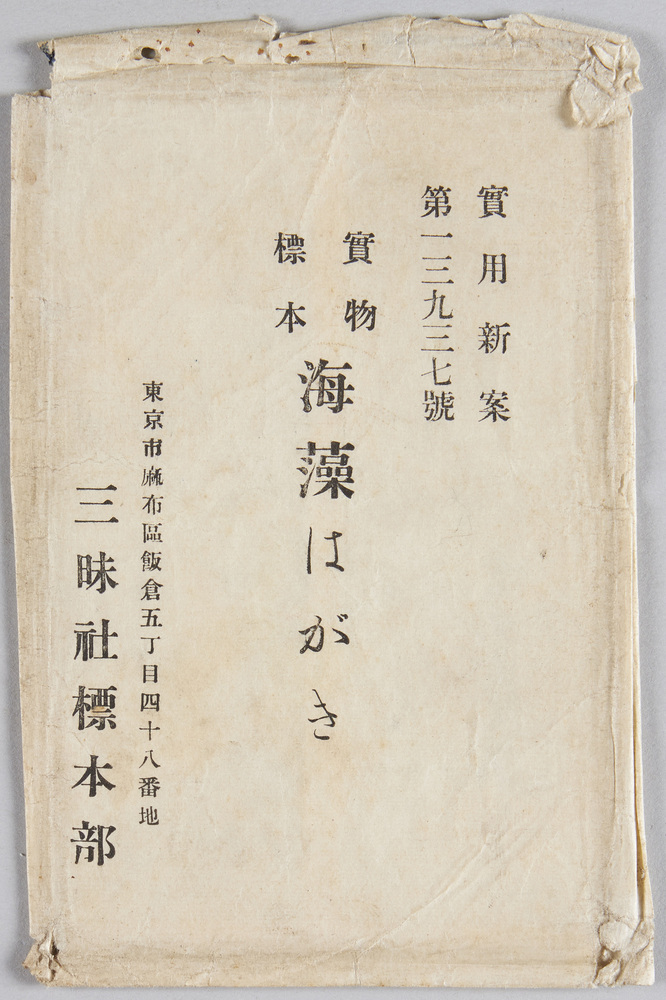 實用新案
第一三九三七號
實物
標本
海藻はがき
東京市麻布區飯倉五丁目四十八番地
三昧社標本部